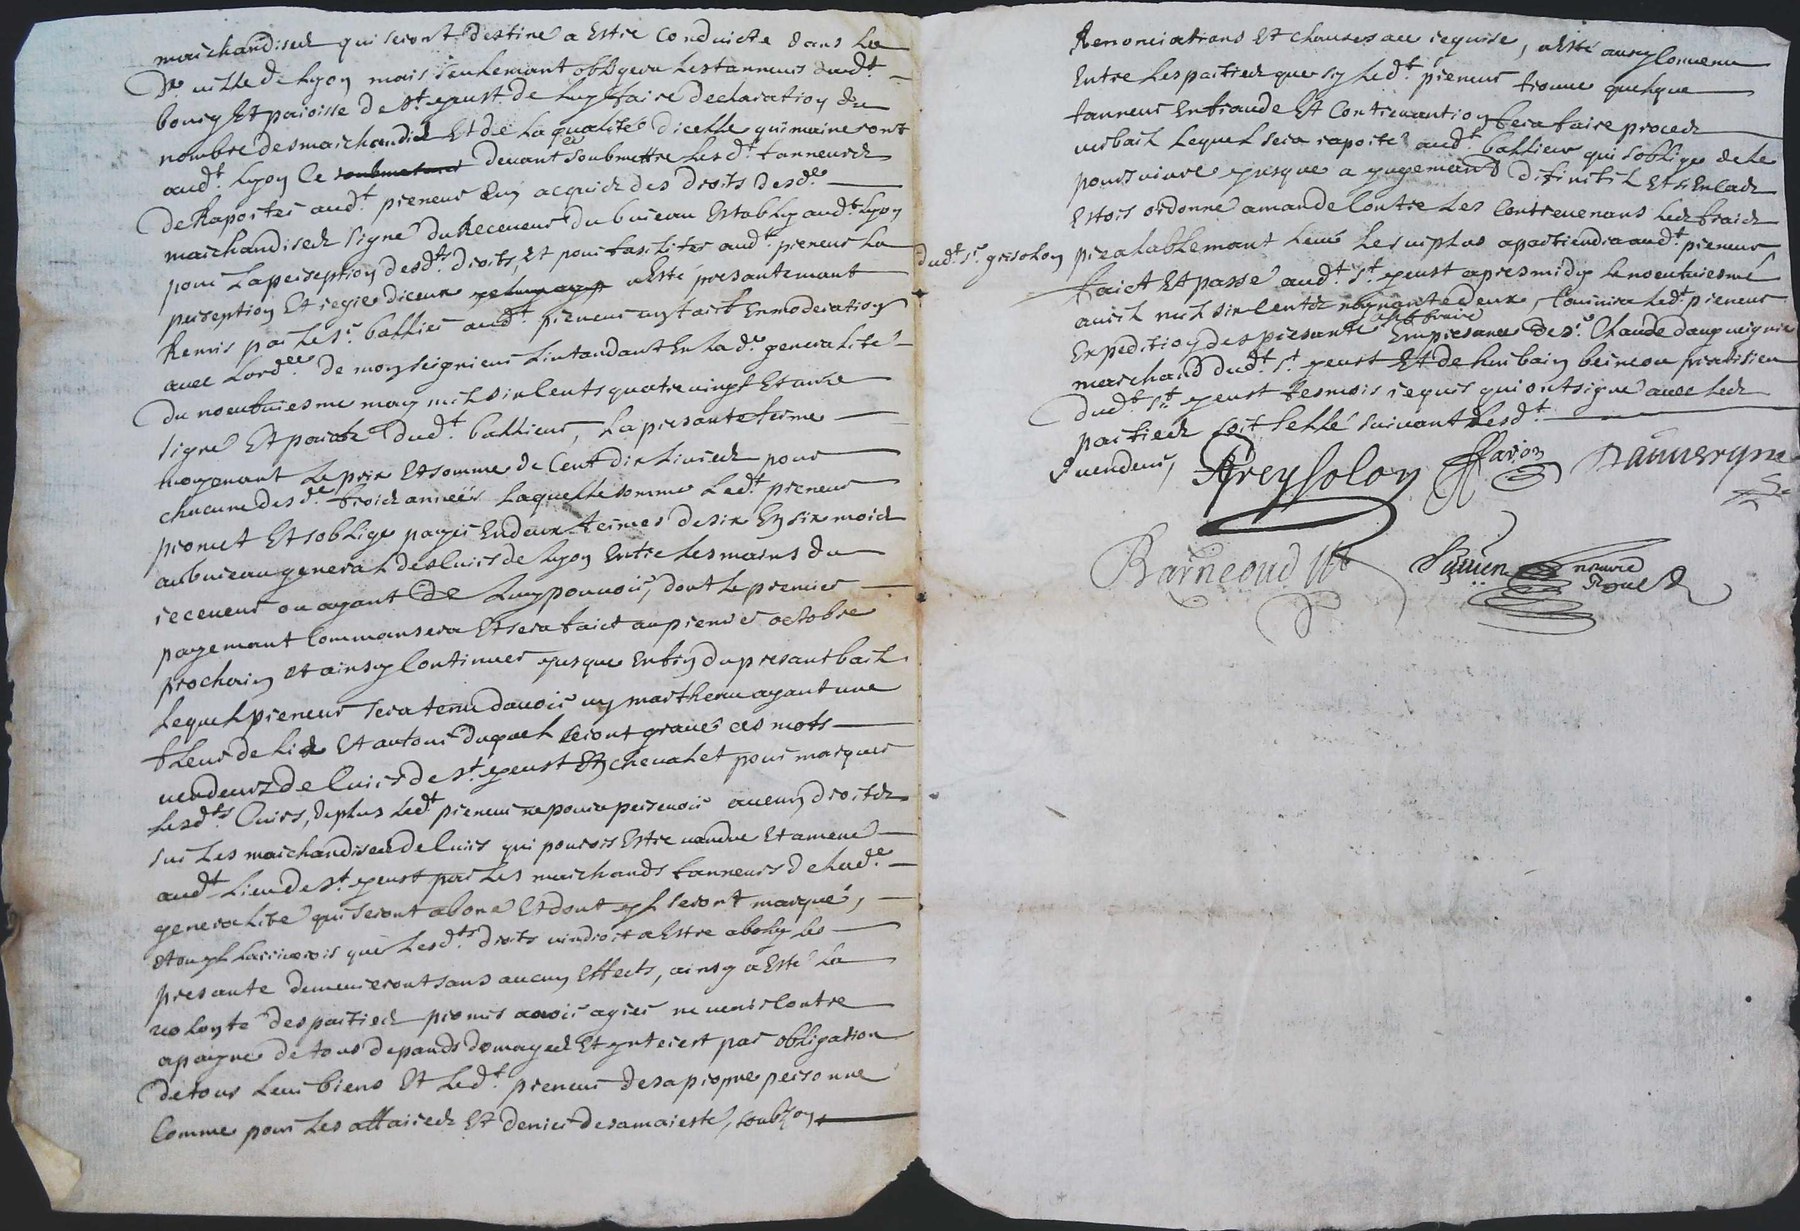 marchandises qui seront destine a Estre Conduicte dans la
de. ville de lyon mais seulemant obligera les tanneurs dudt.
bourg Et paroisse de St. yeust de luy faire declaration du
nombre des marchandises Et de la qualité dicelle qui maineront
audt. lyon Ce devant soubmettre lesdt. tanneurs
de Raporter audt. preneur un acquict des droits desde.
marchandises signé du Receveur du bureau Estably audt. lyon
pour la perseption desdt. droits, Et pour fasiliter audt. preneur la
perseption Et regie diceux a Esté presantemant
Remis par le sr. ballieur audt. preneur un tarif En moderation
avec lordce. de monseigneur lintandant En la de. generalité
du neufviesme may mil six cents quatre vingt Et onze
signé Et paraffé dudt. ballieur, la presante ferme
moyenant le prix Et somme de Cent dix livres pour
chacune desde. trois années laquelle somme ledt. preneur
promet Et soblige payer En deux termes de six En six mois
au bureau general des cuirs de lyon Entre les mains du
receveur ou ayant de luy pouvoir, dont le premier
payemant Commansera Et sera faict au premier octobre
prochain Et ainsy Continuer jusque En fin du presant bail
lequel preneur sera tenu davoir un martheau ayant une
fleur de lis Et autour duquel seront gravé ces mots
vendeurs de Cuirs de St. yeust En chevalet pour marquer
lesdts. Cuirs, de plus ledt. preneur ne poura persevoir aucun droits
sur les marchandises de Cuirs qui pouroit Estre vandue Et amené
audt. lieu de St. yeust par les marchands tanneurs de lade.
generalité qui seront aboné Et dont yl seront marqué,
Et ou yl lariveroit que lesdts. droits vindroit a Estre aboly les
presante demeureront sans aucun Effects, ainsy a Esté la
volonté des parties promis avoir agreé ne venir Contre
a payne de tous depands domages Et ynterest par obligation
de tous leur biens Et ledt. preneur de sa propre personne
Comme pour les affaires Et denier de sa maiesté, soubz on
Renonciations Et clauses au requise, a Esté ausy Convenu
Entre les parties que sy ledt. preneur trouve quelque
tanneur En fraude Et Contrevantion fera faire proces
verbail lequel sera raporté audt. ballieur qui soblige de le
poursuivre jusque a jugemant definitif Et si En cas
Estoit ordonné amande Contre les Contrevenans les frais
dudt. Sr. gresolon prealablemant levé le surplus apartiendra audt. preneur
faict Et passé audt. St. yeust apres midy le neufviesme
avril mil six cents nonante deux, fournira ledt. preneur
Expedition des presante Em presance de Sr. Claude dauvergne
marchand dudt. St. yeust Et de hurbain berneou pratisien
dudt. St. yeust tesmoins requis qui ont signé avec les
parties soit sellé suivant lesdt.
vendeur,
Greysolon faron Dauvergne
Barneoud
nottaire
Royal